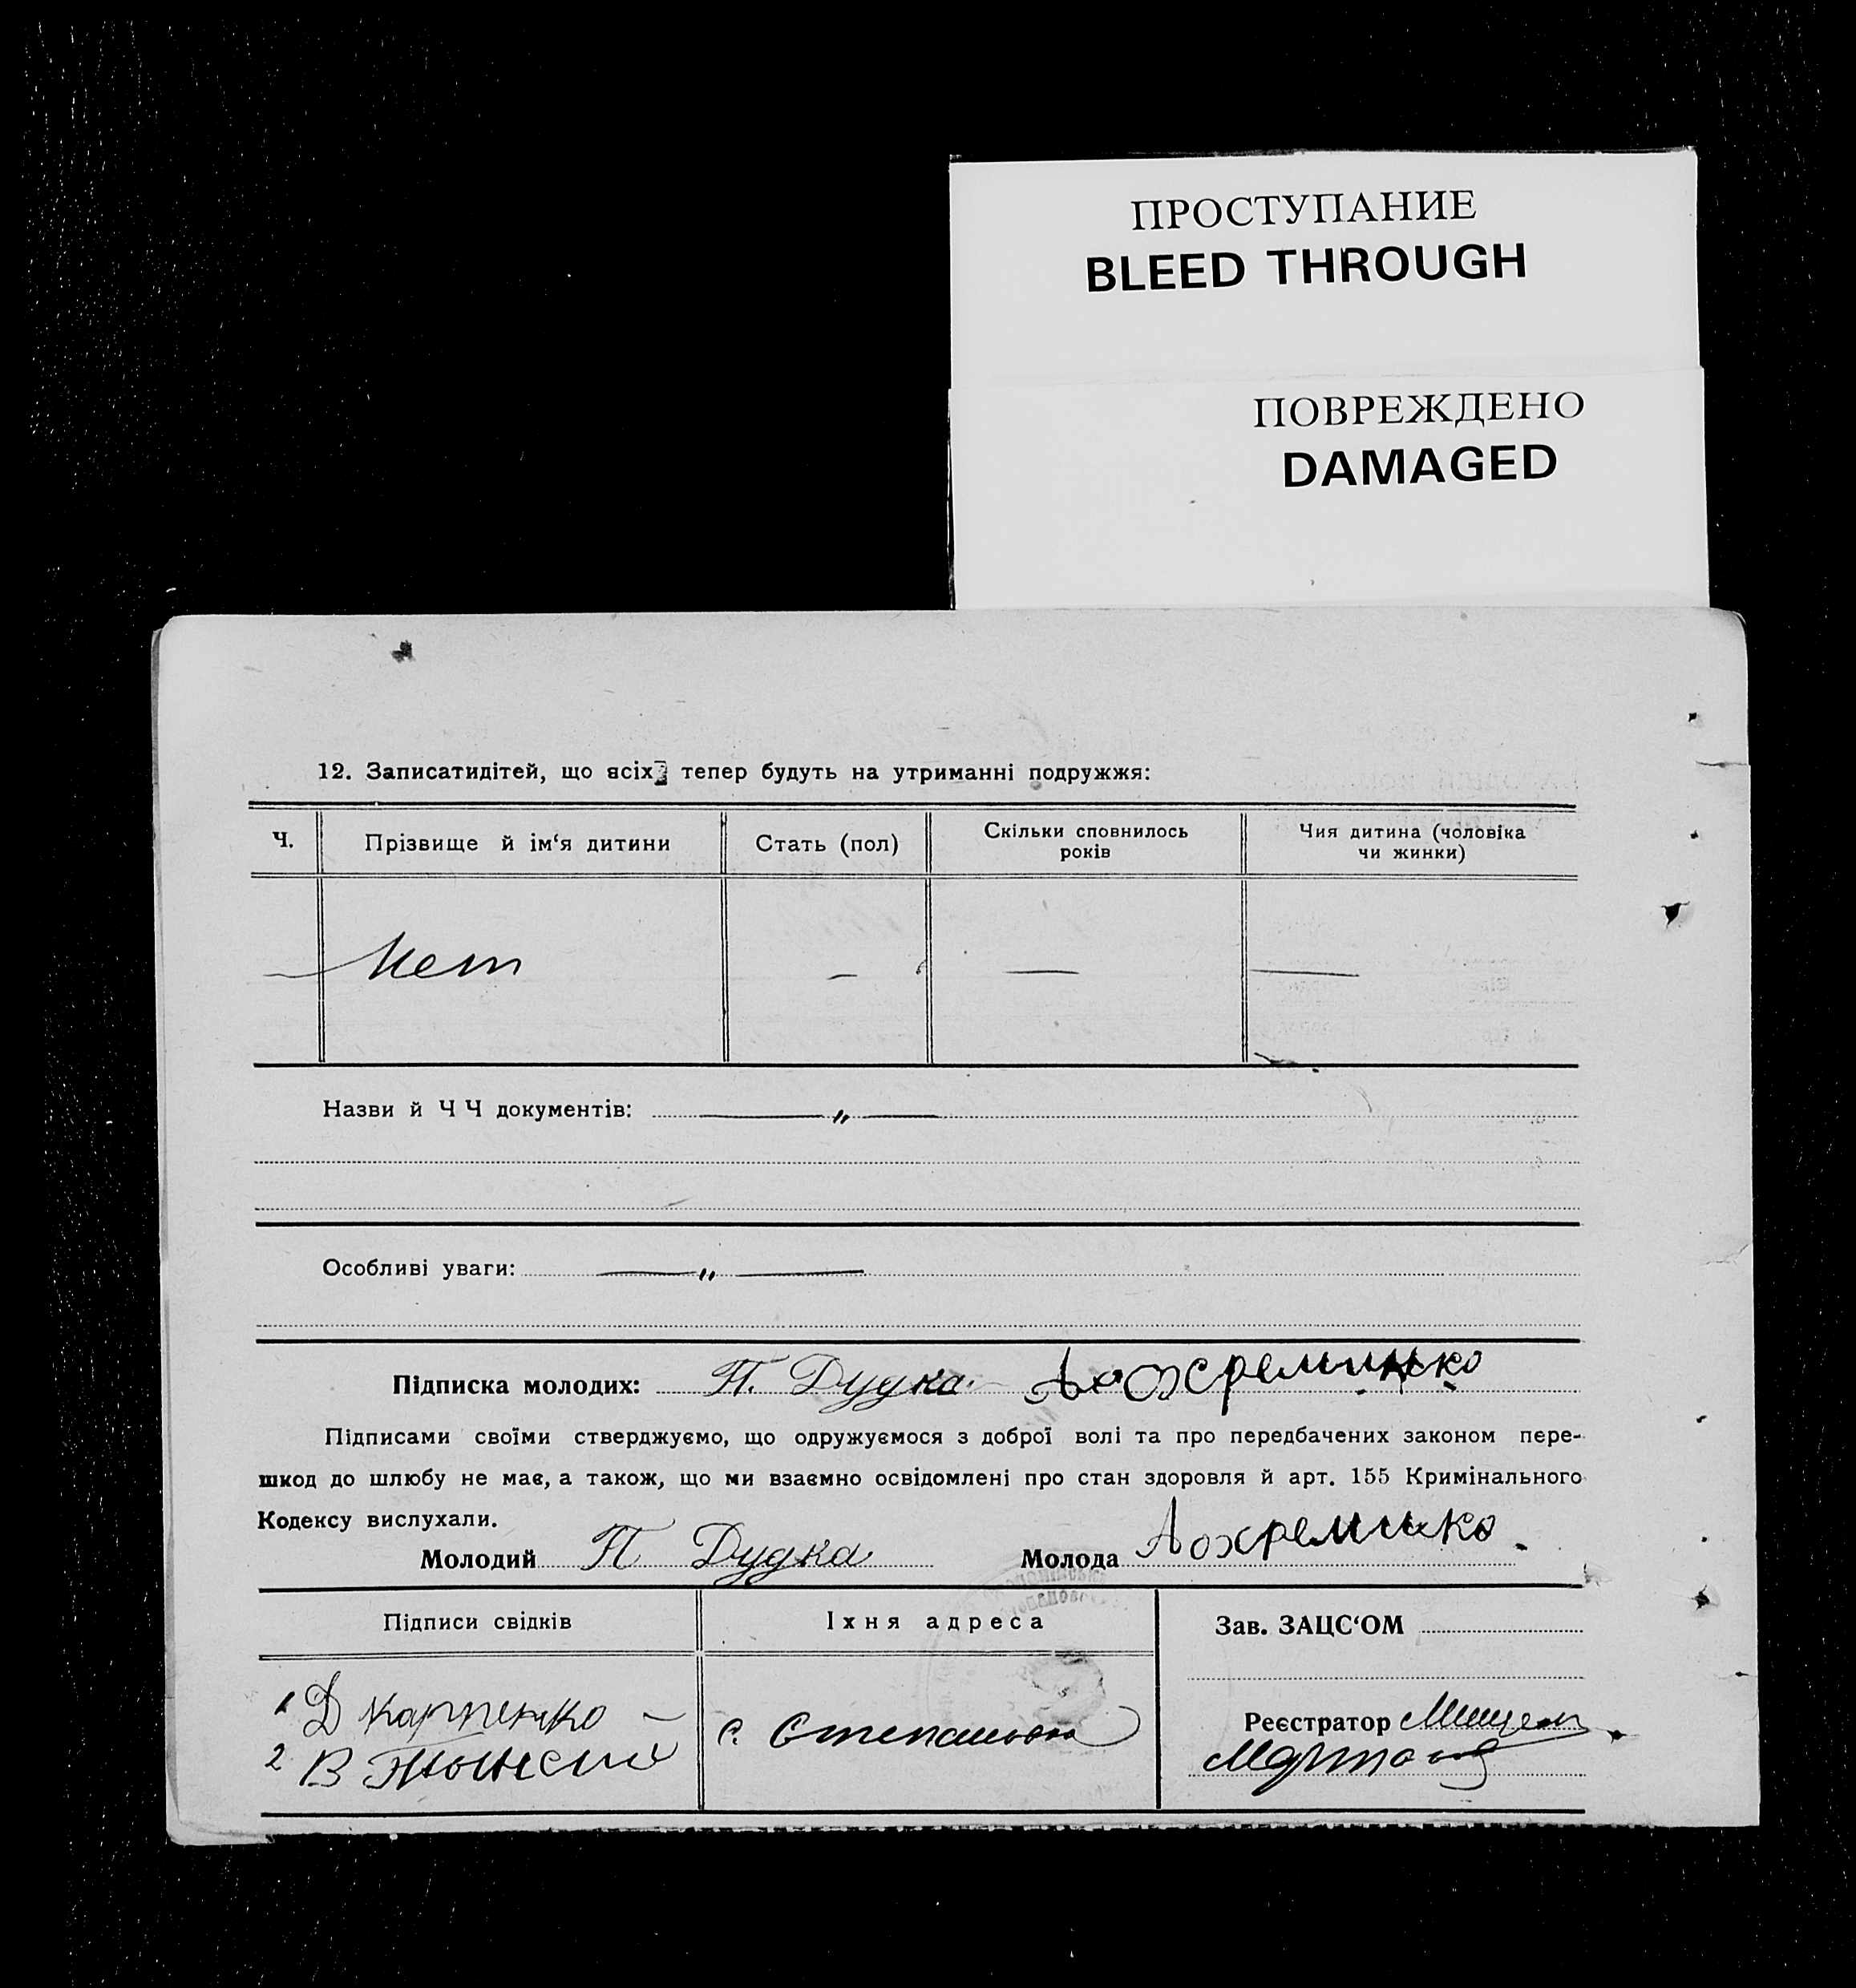 ПРОСТУПАНИЕ
BLEED THROUGH
ПОВРЕЖДЕНО
DAMAGED
12. Записатидітей, що всіх тепер будуть на утриманні подружжя:
Ч. Прізвище й ім‘я дитини Стать (пол) Скільки сповнилось років Чия дитина (чоловіка чи жинки)
— Нет — — —
Назви й Ч Ч документів: — „ —
Особливі уваги: — „ —
Підписка молодих: П. Дудка
Підписами своїми стверджуємо, що одружуємося з доброї волі та про передбачених законом пере-
шкод до шлюбу не має, а також, що ми взаємно освідомлені про стан здоровля й арт. 155 Кримінального
Кодексу вислухали.
Молодий П Дудка Молода
Підписи свідків Їхня адреса Зав. ЗАЦС‘ОМ
1 Д Карпенко —
2 В с.
Реєстратор